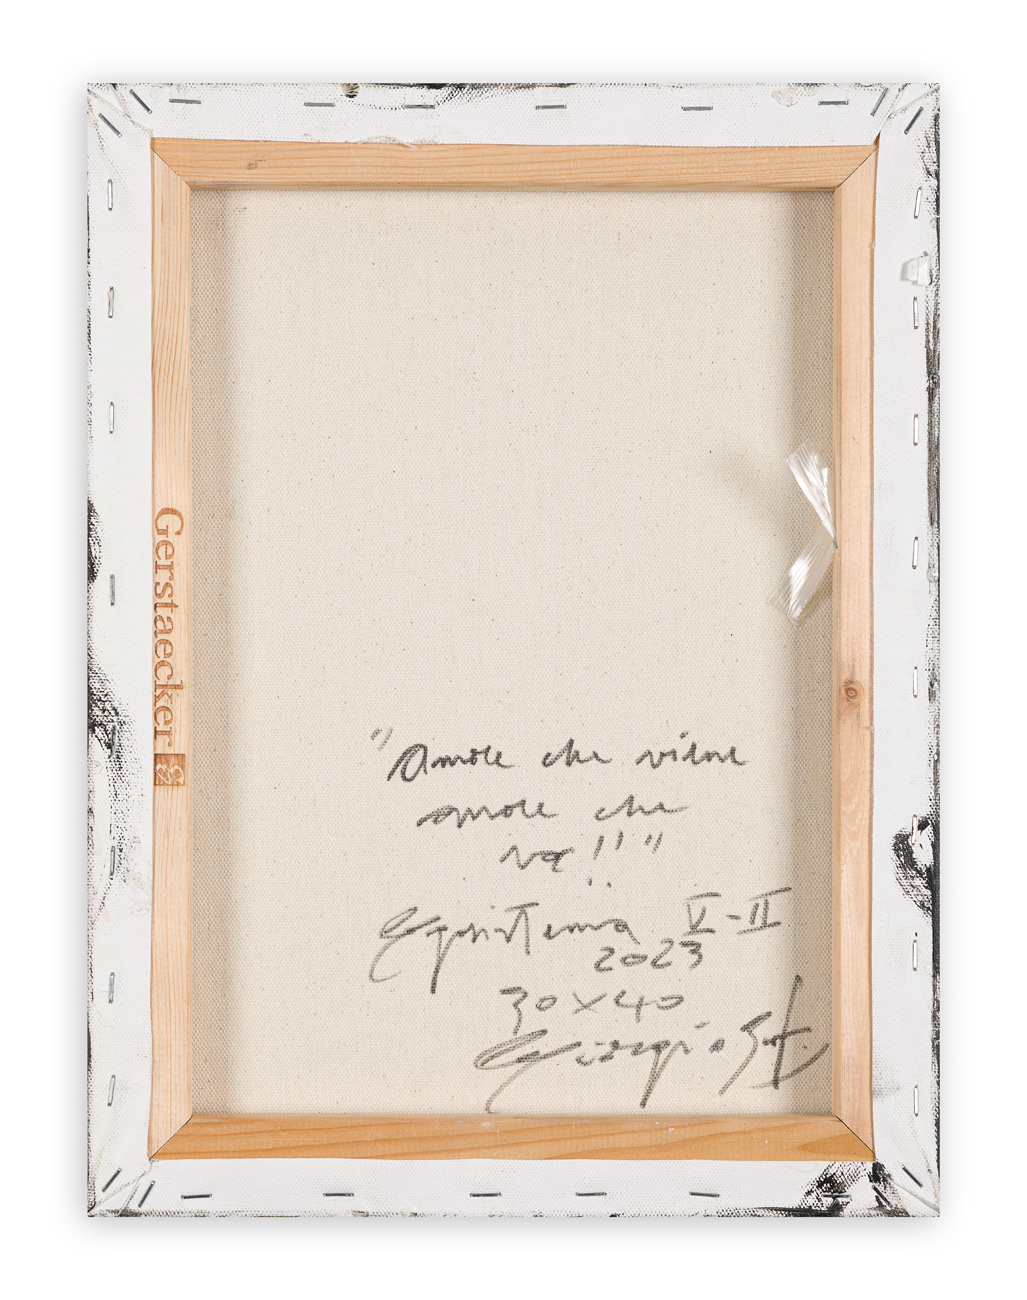 Gerstaecker
"Amore che viene
amore che
va!!"
V-II
2023
30 x 40
Giorgio